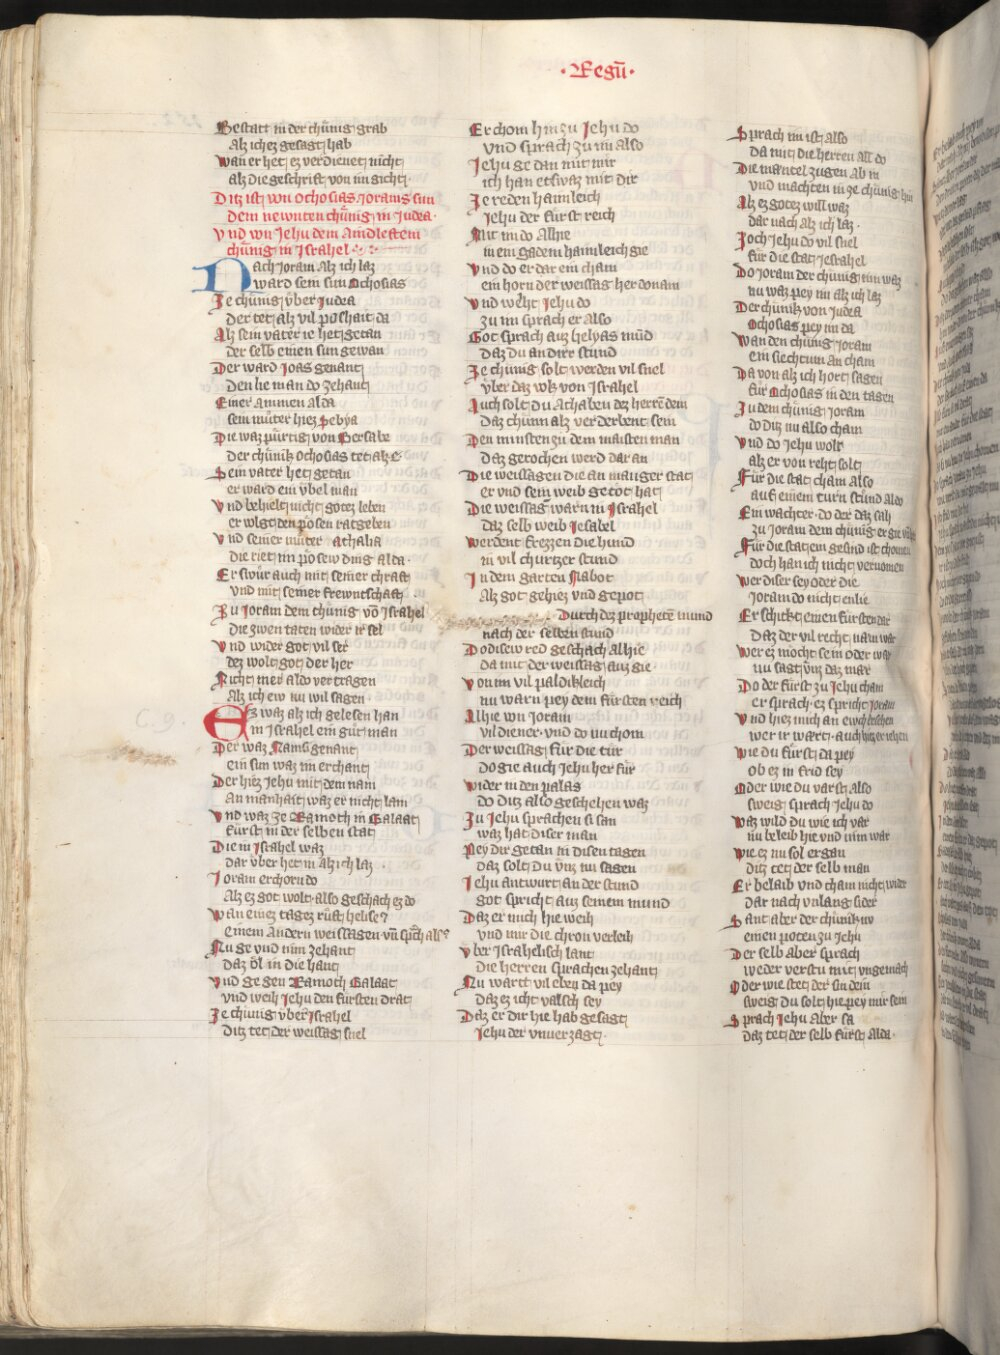 · Regū ·
Bestatt in der chünig grab
Alz ich ez gesagt hab
Wan er het ez verdienet nicht
alz die geschrift von im gicht ·
Ditz ist von Ochosias Jorams sun
dem newnten chünig in Judea ·
Vnd von Jehu dem Aindleftem
chünig in Jsrahel
Nach Joram alz ich laz
ward sein sun Ochosias
Ze chünig vber Judea
der tet alz vil poshait da
Alz sein vater ie het getan
der selb einen sun gewan
Der ward Joas genant
Den lie man do zehant
Einer ammen alda
sein muter hiez Zebya
Die waz pürtig von Bersabe
der chünik Ochosias tet alz e
Sein vater het getan
er ward ein vbel man
Vnd behielt nicht gotez leben
er volgt den pösen ratgeben
Vnd seiner muter Athalia
die riet im pösew ding alda ·
Er swür auch mit seiner chraft
vnd mit seiner frewntschaft
Zu Joram dem chünig vō Jsrahel
die zwen taten wider ir sel
Vnd wider got vil ser
dez wolt got der her
Nicht mer aldo vertragen
Alz ich ew nu wil sagen
Ez waz alz ich gelesen han
in Jsrahel ein güt man
Der waz Namsi genant
ein sun waz im erchant
Der hiez Jehu mit dem nam
An manhait waz er nicht lam
Vnd waz ze Ramoth in Galaat
fürst in der selben stat
Die in Jsrahel waz
dar vber het in alz ich laz
Joram erchorn do
Alz ez got wolt · also geschach ez do
Wan einez tagez rüft heliseus
einem Andern weissagen · vn̄ sprach alsus
Nu ge vnd nim zehant
daz öl in die hant
Vnd ge gen Ramoth Galaat
vnd weih Jehu den fürsten drat
Ze chünig vber Jsrahel
ditz tet der weissag snel
Er chom hin zu Jehu do
vnd sprach zu im also
Jehu ge dan mit mir
ich han etswaz mit dir
Ze reden haimleich
Jehu der fürst reich
Mit im do Alhie
in ein gadem haimleich gie
Vnd do er dar ein cham
ein horn der weissag her donam
Vnd weiht Jehu do
zu im sprach er also
Got sprach auz helyas mūd
daz du an dirr stund
Ze chünig solt werden vil snel
vber daz volk von Jsrahel
Auch solt du Achaben dez herrē dem
daz chünn alz verderbent sein
Den minsten zu dem maisten man
daz gerochen werd dar an
Die weissagen die an maniger stat
er vnd sein weib getöt hat
Die weissag warn in Jsrahel
daz selb weib Jesabel
Werdent frezzen die hund
in vil churtzer stund
In dem garten Nabot
Alz got gehiez vnd gepot
Durch dez prophetē mund
nach der selben stund
Do disew red geschach alhie
da mit der weissag auz gie
Von im vil paldikleich
nu warn pey dem fürsten reich
Alhie von Joram
vil diener · vnd do im chom
Der weissag für die tür
do gie auch Jehu her für
Wider in den palas
do ditz also geschehen waz
Zu Jehu sprachen si san
waz hat diser man
Pey dir getan in disen tagen
daz solt du vns nu sagen
Jehu antwurt an der stund
got spricht auz seinem mund
Daz er mich hie weih
vnd mir die chron verleih
Vber Jsrahelisch lant
die herren sprachen zehant
Nu wartt vil eben da pey
daz ez icht valsch sey
Daz er dir hie hab gesagt
Jehu der vnuerzagt ·
Sprach im ist also
da mit die herren all do
Die mantel zugen ab in
vnd machten in ze chünig hin
Alz ez gotez will waz
dar nach alz ich laz ·
Zoch Jehu do vil snel
für die stat Jesrahel
Do Joram der chünig inn waz
nu waz pey im alz ich laz
Der chünik von Judea
Ochosias pey im da
Wan den chünig Joram
ein siechtum an cham
Da von alz ich hort sagen
für Ochosias in den tagen
Zu dem chünig Joram
do ditz nu also cham
Vnd do Jehu wolt
alz er von reht solt
Für die stat cham also
auf einem turn stund aldo
Ein wachter · do der daz sah
zu Joram dem chünig er gie
Für die stat ein gesind ist chomen
doch han ich nicht vernomen
Wer diser sey oder die
Joram do nicht enlie
Er schickt einen fürsten dar
daz der vil recht nam war
Wer ez möcht sein oder war
nu sagt vns daz mar
Do der fürst zu Jehu cham
er sprach · ez spricht Joram
Vnd hiez mich an ewch ersehen
wer ir wært · auch hiez er iehen
Wie du fürst da pey
ob ez in frid sey
Oder wie du varst also
sweig sprach Jehu do
Waz wild du wie ich var
nu beleib hie vnd nim war
Wie ez nu sol ergan
ditz tet der selb man
Er belaib vnd cham nicht wider
dar nach vnlang sider
Sant aber der chünik
einen poten zu Jehu
Der selb aber sprach
weder verstu mit vngemach
Oder wie stet der sin dein
sweig du solt hie pey mir sein
Sprach Jehu aber sa
daz tet der selb fürst alda ·